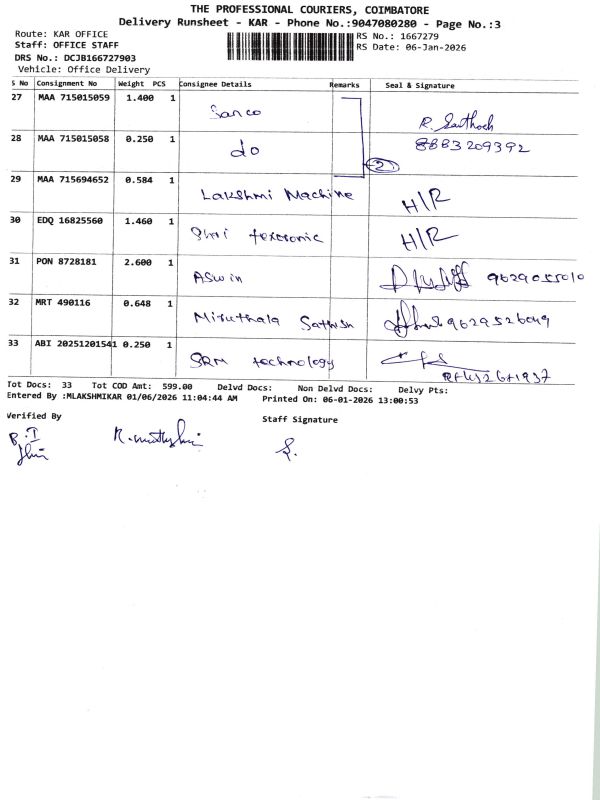 THE PROFESSIONAL COURIERS, COIMBATORE
Delivery Runsheet - KAR - Phone No.:9047080280 - Page No.:3
Route: KAR OFFICE
RS No.: 1667279
Staff: OFFICE STAFF
RS Date: 06-Jan-2026
DRS No.: DCJB166727903
Vehicle: Office Delivery
S No Consignment No Weight PCS Consignee Details Remarks Seal & Signature
27 MAA 715015059 1.400 1 Sanco
28 MAA 715015058 0.250 1 do 8883209392
2
29 MAA 715694652 0.584 1 Lakshmi Machine H/R
30 EDQ 16825560 1.460 1 Shri texcronic H/R
31 PON 8728181 2.600 1 Aswin
32 MRT 490116 0.648 1 Miruthala Sathish
33 ABI 20251201541 0.250 1 SRM technology
Tot Docs: 33 Tot COD Amt: 599.00 Delvd Docs: Non Delvd Docs: Delvy Pts:
Entered By :MLAKSHMIKAR 01/06/2026 11:04:44 AM Printed On: 06-01-2026 13:00:53
Verified By Staff Signature